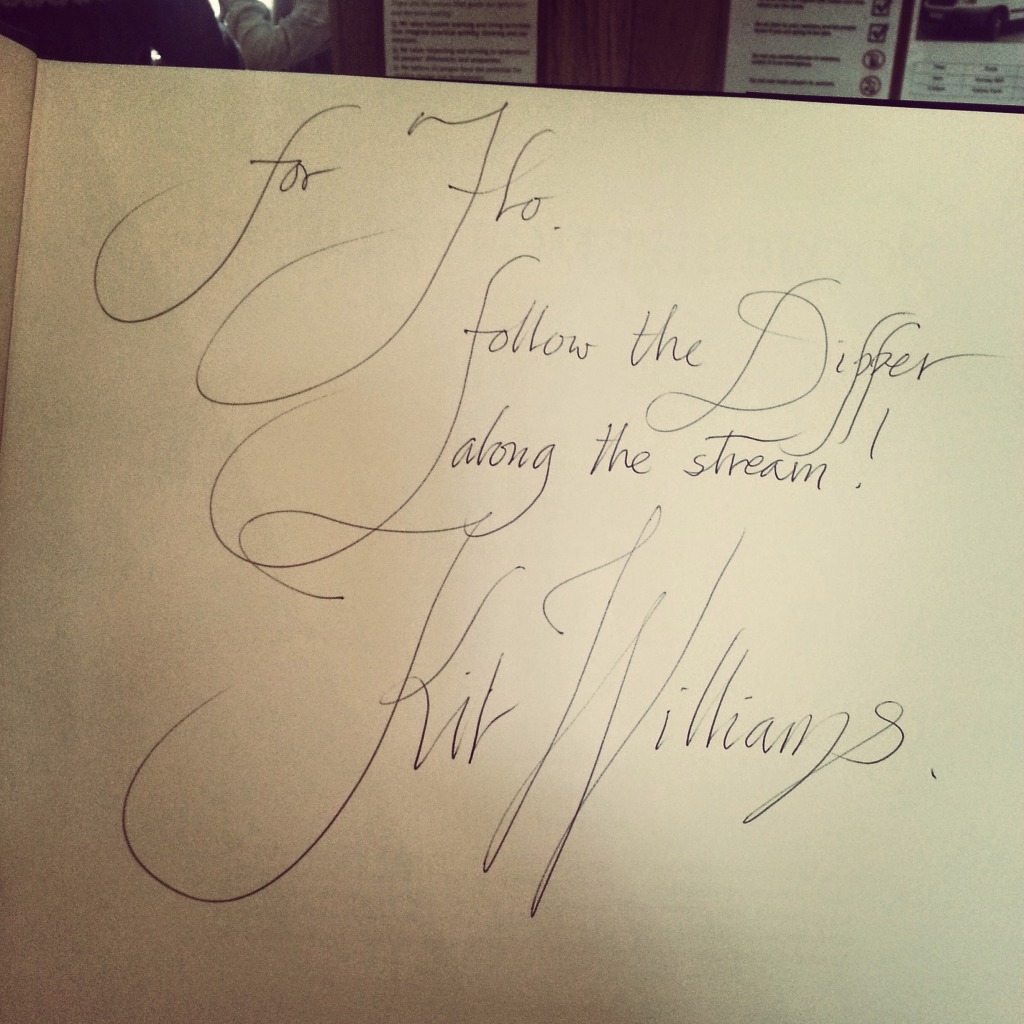 for Flo.
follow the Dipper
along the stream!
Kit Williams.